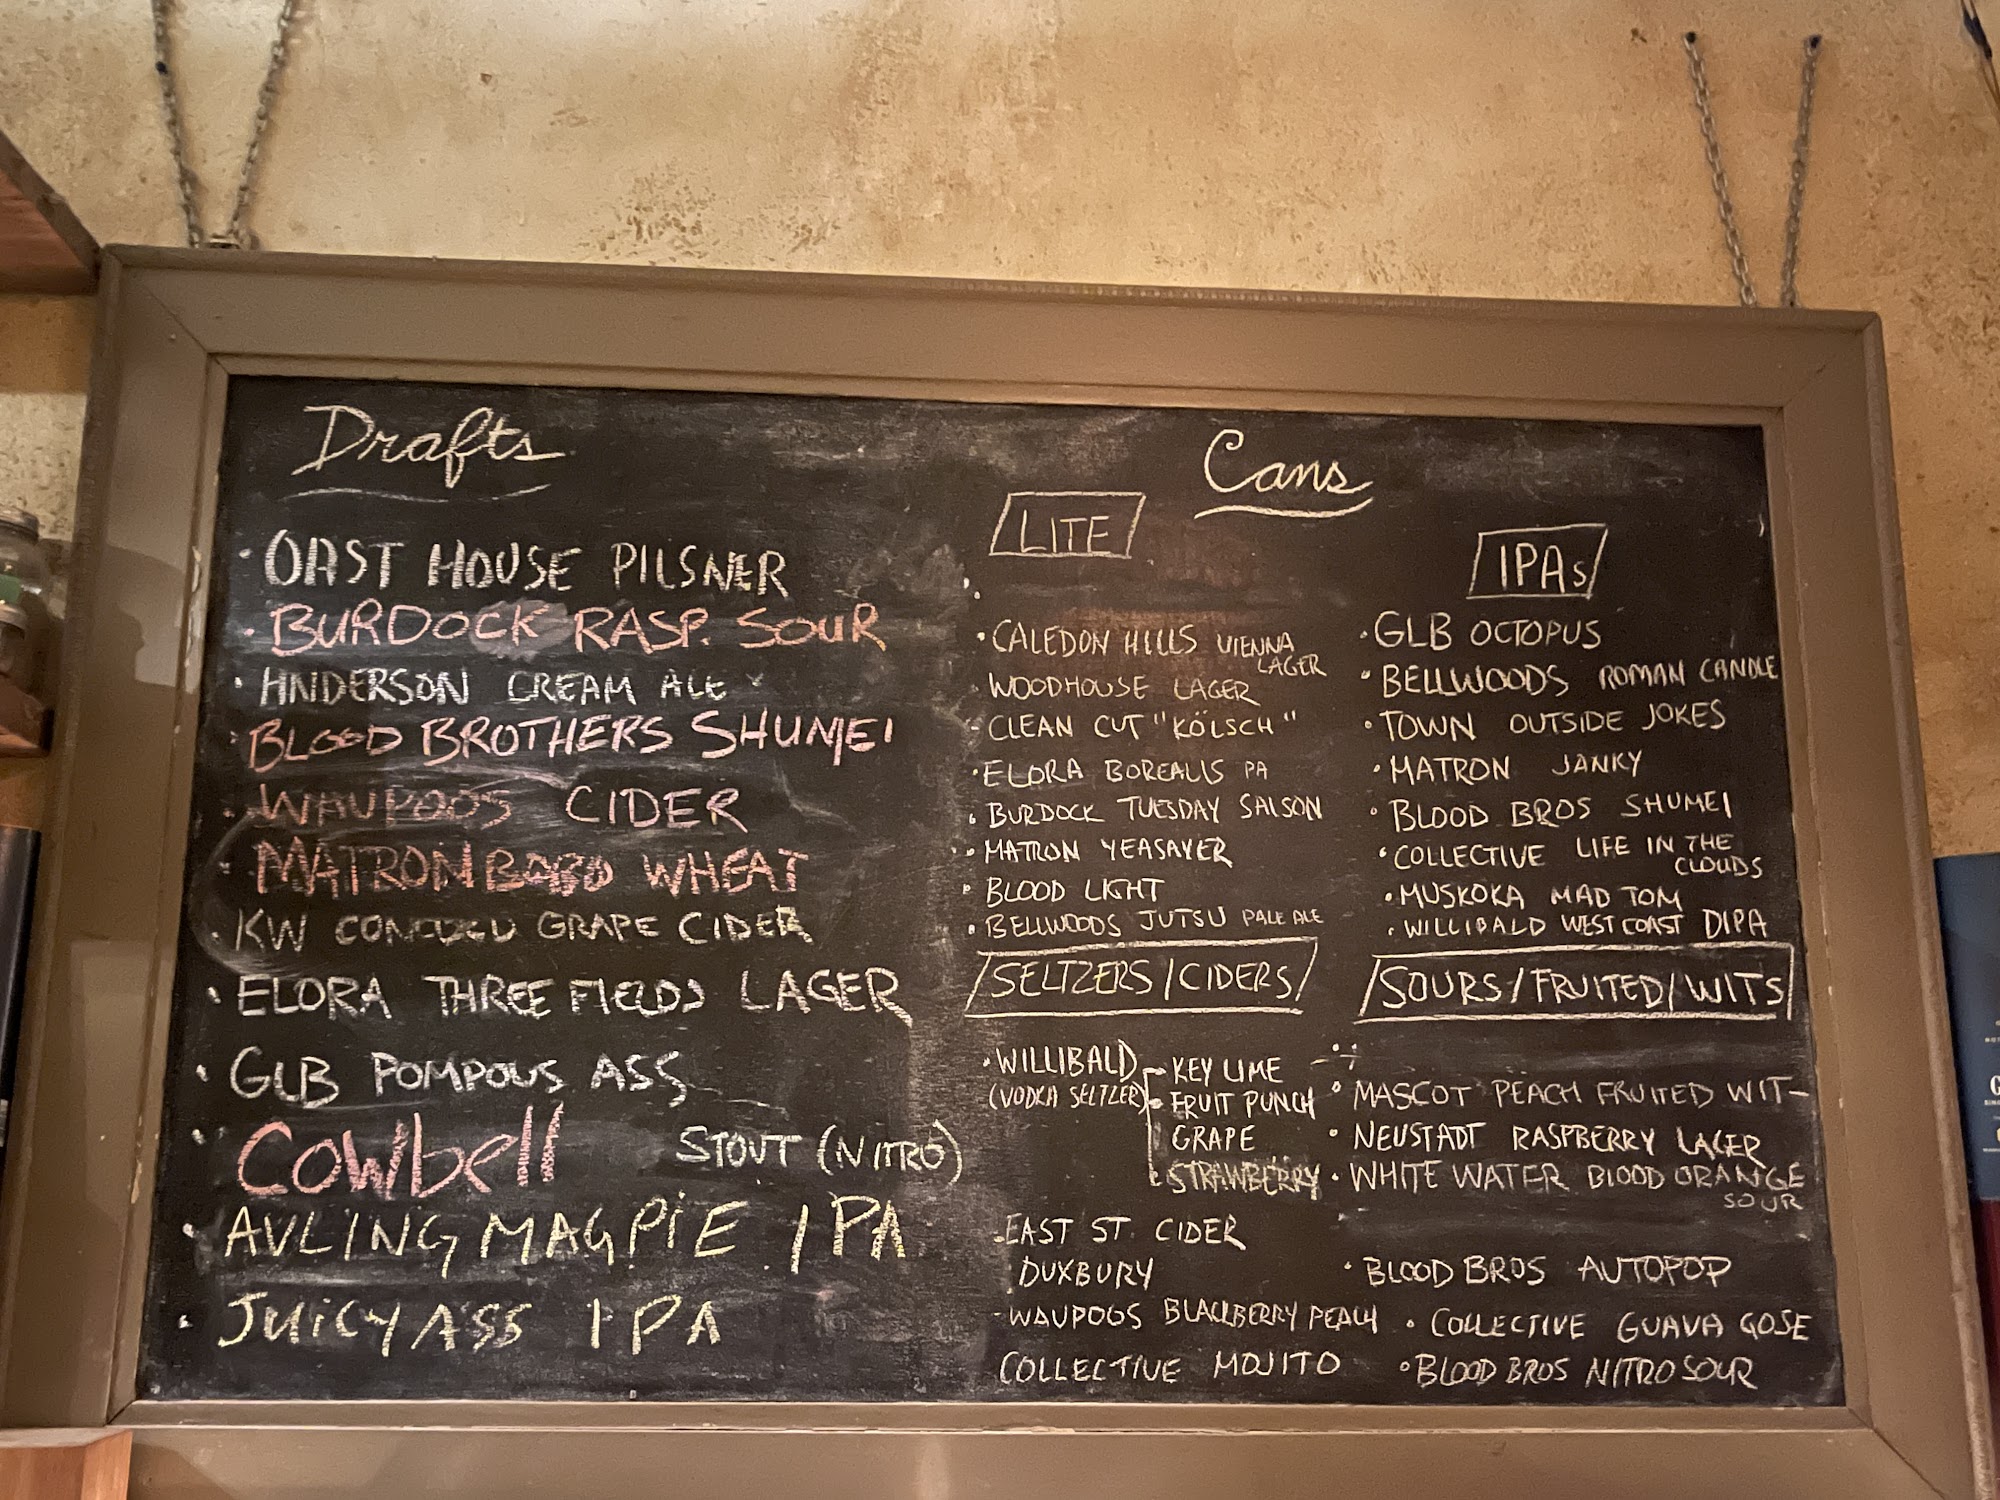 Drafts
OAST HOUSE PILSNER
BURDOCK RASP. SOUR
ANDERSON CREAM ALE
BLOOD BROTHERS SHUMEI
WAUPOOS CIDER
MATRON BOBO WHEAT
KW GRAPE CIDER
ELORA THREE FIELDS LAGER
GLB POMPOUS ASS
Cowbell STOUT (NITRO)
AVLING MAGPIE IPA
JUICY ASS IPA
Cans
LITE
CALEDON HILLS VIENNA
LAGER
WOODHOUSE LAGER
CLEAN CUT "KÖLSCH"
ELORA BOREALIS PA
BURDOCK TUESDAY SAISON
MATRON YEASAYER
BLOOD LIGHT
BELLWOODS JUTSU PALE ALE
SELTZERS/CIDERS
WILLIBALD KEY LIME
(VODKA SELTZER) FRUIT PUNCH
GRAPE
STRAWBERRY
EAST ST. CIDER
DUXBURY
WAUPOOS BLACKBERRY PEACH
COLLECTIVE MOJITO
IPAs
GLB OCTOPUS
BELLWOODS ROMAN CANDLE
TOWN OUTSIDE JOKES
MATRON JANKY
BLOOD BROS SHUMEI
COLLECTIVE LIFE IN THE
CLOUDS
MUSKOKA MAD TOM
WILLIBALD WEST COAST DIPA
SOURS/FRUITED/WITS
MASCOT PEACH FRUITED WIT
NEUSTADT RASPBERRY LAGER
WHITE WATER BLOOD ORANGE
SOUR
BLOOD BROS AUTOPOP
COLLECTIVE GUAVA GOSE
BLOOD BROS NITRO SOUR